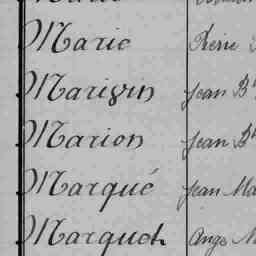 Marie Pierre
Marigin Jean B
Marion Jean B
Marqué Jean Ma
Marquet Ange M